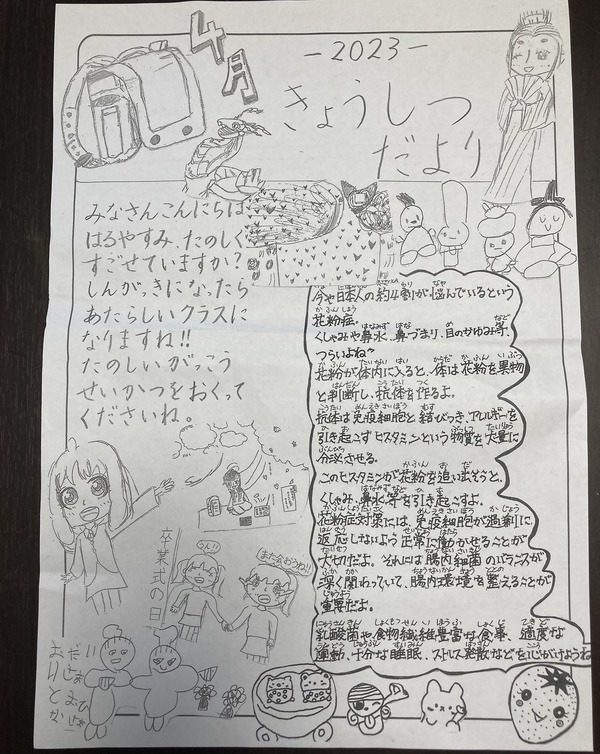 4月
-2023-
きょうしつ
だより
みなさんこんにちは
はるやすみ、たのしく
すごせていますか?
しんがっきになったら
あたらしいクラスに
なりますね!!
たのしいがっこう
せいかつをおくって
くださいね。
今や日本人の約4割が悩んでいるという
花粉症。
くしゃみや鼻水、鼻づまり、目のかゆみ等、
つらいよね~
花粉が体内に入ると、体は花粉を異物
と判断し、抗体を作るよ。
抗体は免疫細胞と結びつき、アレルギーを
引き起こすヒスタミンという物質を大量に
分泌させる。
このヒスタミンが花粉を追い出そうと、
くしゃみ、鼻水等を引き起こすよ。
花粉症対策には、免疫細胞が過剰に
反応しないよう正常に働かせることが
大切だよ。それには腸内細菌のバランスが
深く関わっていて、腸内環境を整えることが
重要だよ。
乳酸菌や食物繊維豊富な食事、適度な
運動、十分な睡眠、ストレス発散などを心がけようね
卒業式の日
うん!!
また会おうね!